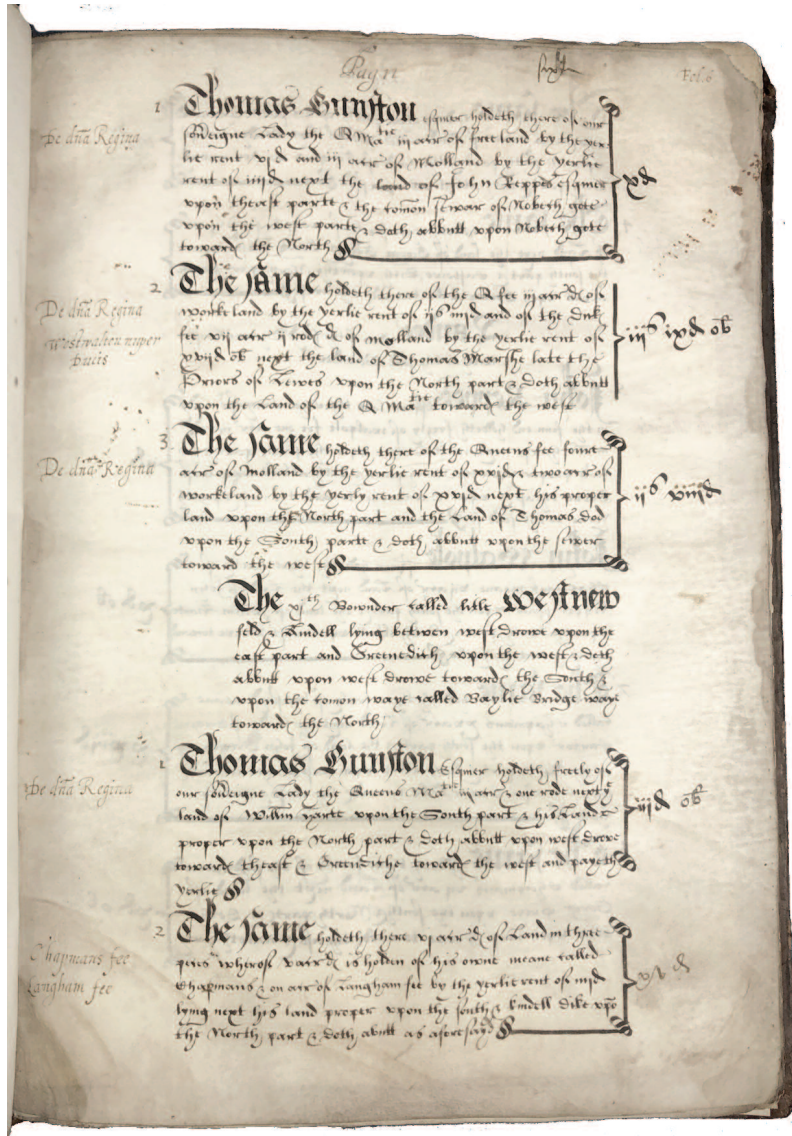 Payn
Fol. 6
1 Thomas Gunston esquier holdeth there of our
De dna Regina
soveigne Lady the Q Matie iii acr of free land by the yer-
lie rent vid and iii acr of Molland by the yerlie
rent of iiiid next the land of John Reppes esquier
upon theast parte & the comon sewar of
upon the west parte & doth abbutt upon
toward the North
xd
2 The same holdeth there of the Q fee iii acr di of
De dna Regina
Westwalton nuper
Ducis
workeland by the yerlie rent of iis iiiid and of the Duk
fee vii acr ii rod di of molland by the yerlie rent of
xviid ob next the land of Thomas Marshe late the
Priors of Lewes upon the North part & doth abbutt
upon the Land of the Q Matie toward the west
iiis ixd ob
3 The same holdeth there of the Queens fee foure
De dna Regina
acr of Molland by the yerlie rent of xvid & two acr of
workeland by the yerly rent of xvid next his proper
land upon the North part and the Land of Thomas Dod
upon the South parte & doth abbutt upon the sewer
toward the west
iis viiid
The xjth Bownder called litle Westnew
feld & Aundell lying betwen west drove upon the
east part and Greenedich upon the west & doth
abbutt upon west drove toward the South &
upon the comon waye called Baylie Bridge waye
toward the North
1 Thomas Gunston Esquier holdeth freely of
De dna Regina
our soveigne Lady the Queens Matie iii acr & one rode next ye
land of Willm parte upon the South part & his Land
proper upon the North part & doth abbutt upon west drove
toward theast & Greendiche toward the west and payeth
yerlie
iiid ob
2 The same holdeth there vi acr di of Land in three
Chapmans fee
Langham fee
peces wherof v acr di is holden of his owne meane called
Chapmans & on acr of Langham fee by the yerlie rent of
lying next his land proper upon the south & Emdell dike upo
the North part & doth abutt as aforesayd